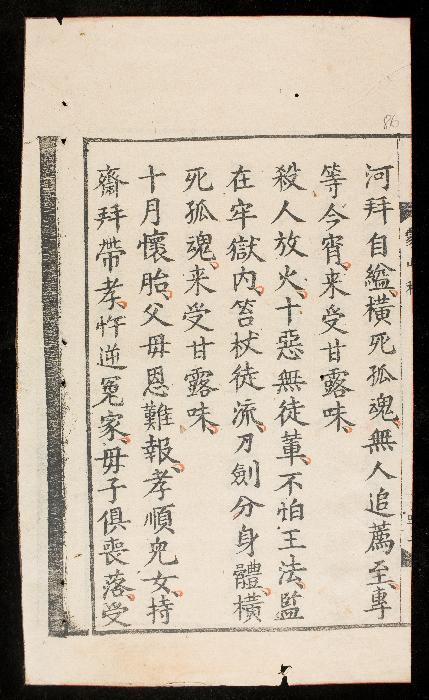 河拜自縊橫死孤魂無人追薦至專
等今宵來受甘露味
殺人放火十惡無徒輩不怕王法監
在牢獄內笞杖徒流刀劍分身體橫
死孤魂來受甘露味
十月懷胎父毋恩難報孝順兒女持
齋拜帶孝忤逆冤家毋子俱喪落受
86